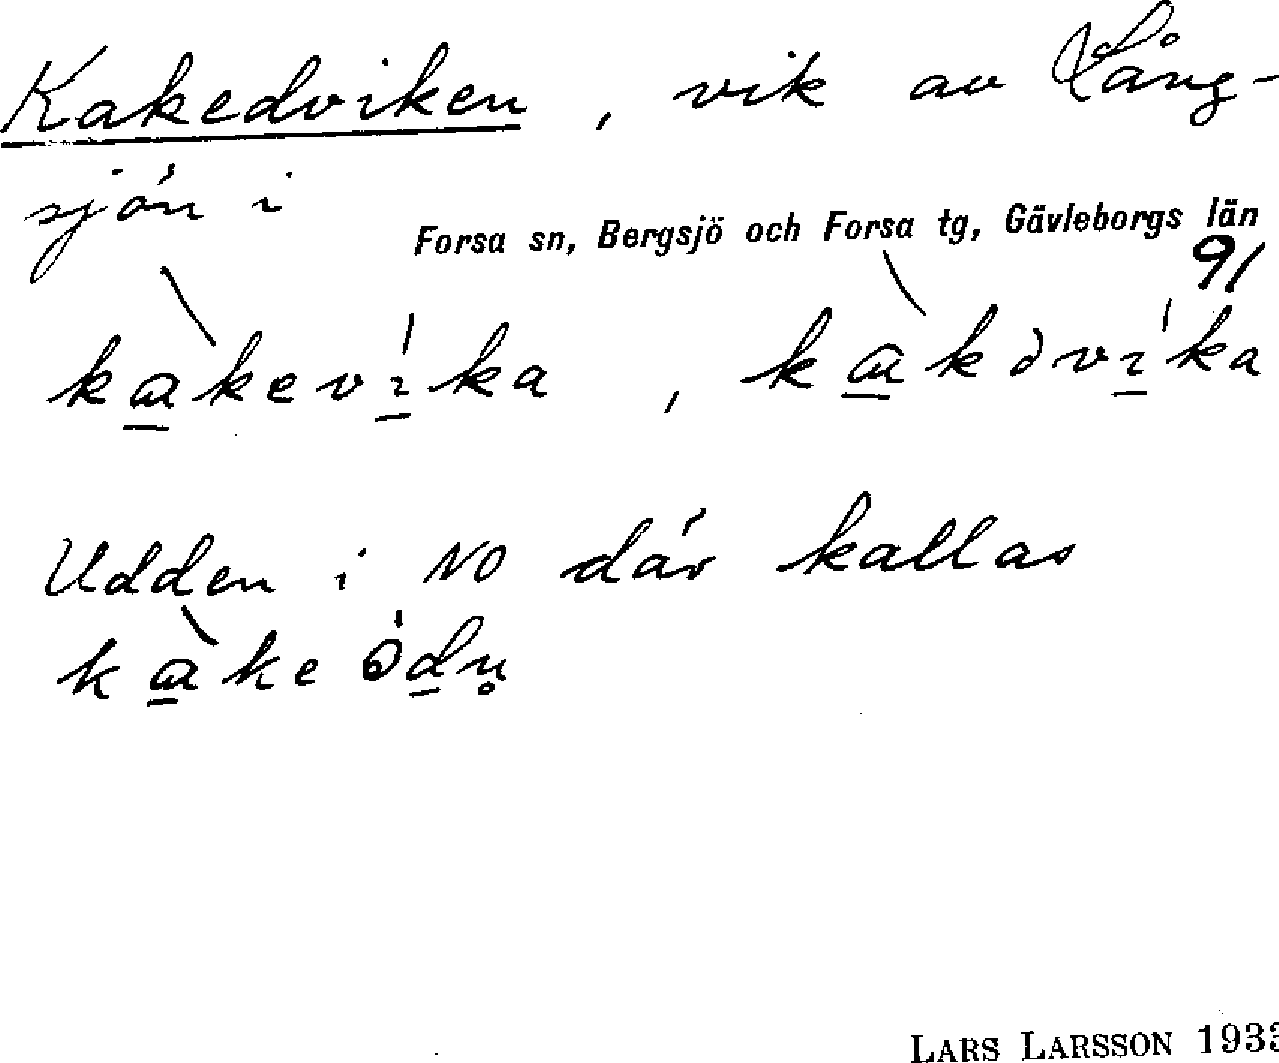 Kakedviken, vik av Lång-
sjön i
Forsa sn, Bergsjö och Forsa tg, Gävleborgs län
91
kakevika, kakəvika
Udden i NO där kallas
kake
LARS LARSSON 193